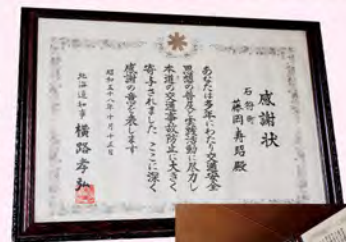 感謝状
石狩町
藤岡寿昭殿
あなたは多年にわたり交通安全
思想の普及と実践活動に尽力し
本道の交通事故防止に大きく
寄与されました ここに深く
感謝の意を表します
昭和五十八年十月十五日
北海道知事 横路孝弘